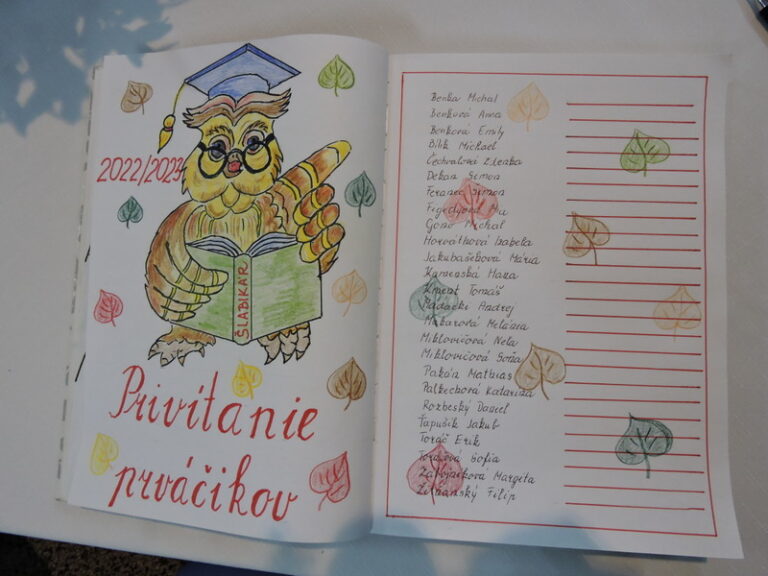 2022/2023
ŠLABIKÁR
Privítanie
prváčikov
Benka Michal
Benková Anna
Benková Emily
Bilik Michael
Čechvalová Zlenka
Dekan Simon
Feranec Simon
Fegedyová
Gono Michal
Horváthková Izabela
Jakubašeková Mária
Kamenská Hana
Kment Tomáš
Madacki Andrej
Melánia
Miklovičová Nela
Miklovičová Soňa
Pakán Mathias
Palkechová Katarína
Rozbeský Daniel
Ťapušík Jakub
Toráč Erik
Sofia
Zabojníková Margita
Žitňanský Filip